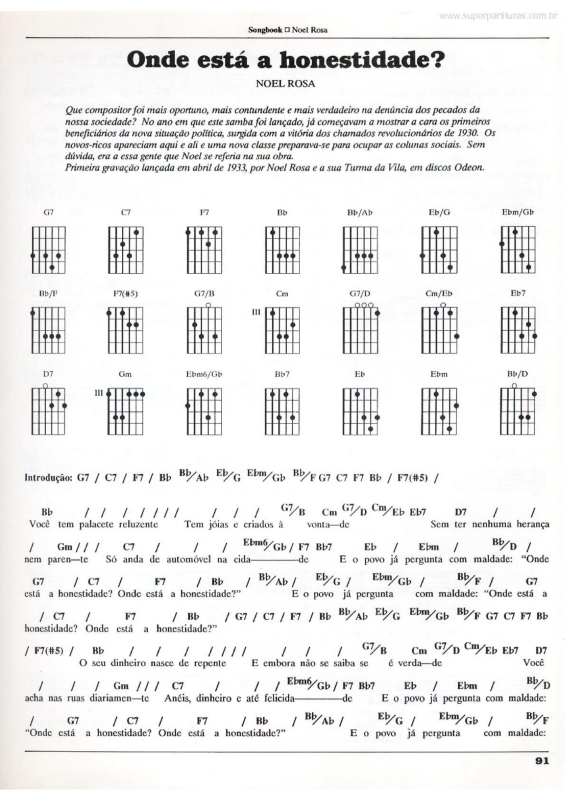 www.superpartituras.com.br
Songbook □ Noel Rosa
Onde está a honestidade?
NOEL ROSA
Que compositor foi mais oportuno, mais contundente e mais verdadeiro na denúncia dos pecados da
nossa sociedade? No ano em que este samba foi lançado, já começavam a mostrar a cara os primeiros
beneficiários da nova situação política, surgida com a vitória dos chamados revolucionários de 1930. Os
novos-ricos apareciam aqui e ali e uma nova classe preparava-se para ocupar as colunas sociais. Sem
dúvida, era a essa gente que Noel se referia na sua obra.
Primeira gravação lançada em abril de 1933, por Noel Rosa e a sua Turma da Vila, em discos Odeon.
G7 C7 F7 Bb Bb/Ab Eb/G Ebm/Gb
Bb/F F7(#5) G7/B Cm G7/D Cm/Eb Eb7
III
D7 Gm Ebm6/Gb Bb7 Eb Ebm Bb/D
III
Introdução: G7 / C7 / F7 / Bb Bb/Ab Eb/G Ebm/Gb Bb/F G7 C7 F7 Bb / F7(#5) /
Bb / / / / / / / / / / G7/B Cm G7/D Cm/Eb Eb7 D7 / /
Você tem palacete reluzente Tem jóias e criados à vonta—de Sem ter nenhuma herança
/ Gm / / / C7 / / / Ebm6/Gb / F7 Bb7 Eb / Ebm / Bb/D /
nem paren—te Só anda de automóvel na cida———de E o povo já pergunta com maldade: “Onde
G7 / C7 / F7 / Bb / Bb/Ab / Eb/G / Ebm/Gb / Bb/F / G7
está a honestidade? Onde está a honestidade?” E o povo já pergunta com maldade: “Onde está a
/ C7 / F7 / Bb / G7 / C7 / F7 / Bb Bb/Ab Eb/G Ebm/Gb Bb/F G7 C7 F7 Bb
honestidade? Onde está a honestidade?”
/ F7(#5) / Bb / / / / / / / / / / G7/B Cm G7/D Cm/Eb Eb7 D7
O seu dinheiro nasce de repente E embora não se saiba se é verda—de Você
/ / / Gm / / / C7 / / / Ebm6/Gb / F7 Bb7 Eb / Ebm / Bb/D
acha nas ruas diariamen—te Anéis, dinheiro e até felicida———de E o povo já pergunta com maldade:
/ G7 / C7 / F7 / Bb / Bb/Ab / Eb/G / Ebm/Gb / Bb/F
“Onde está a honestidade? Onde está a honestidade?” E o povo já pergunta com maldade:
91